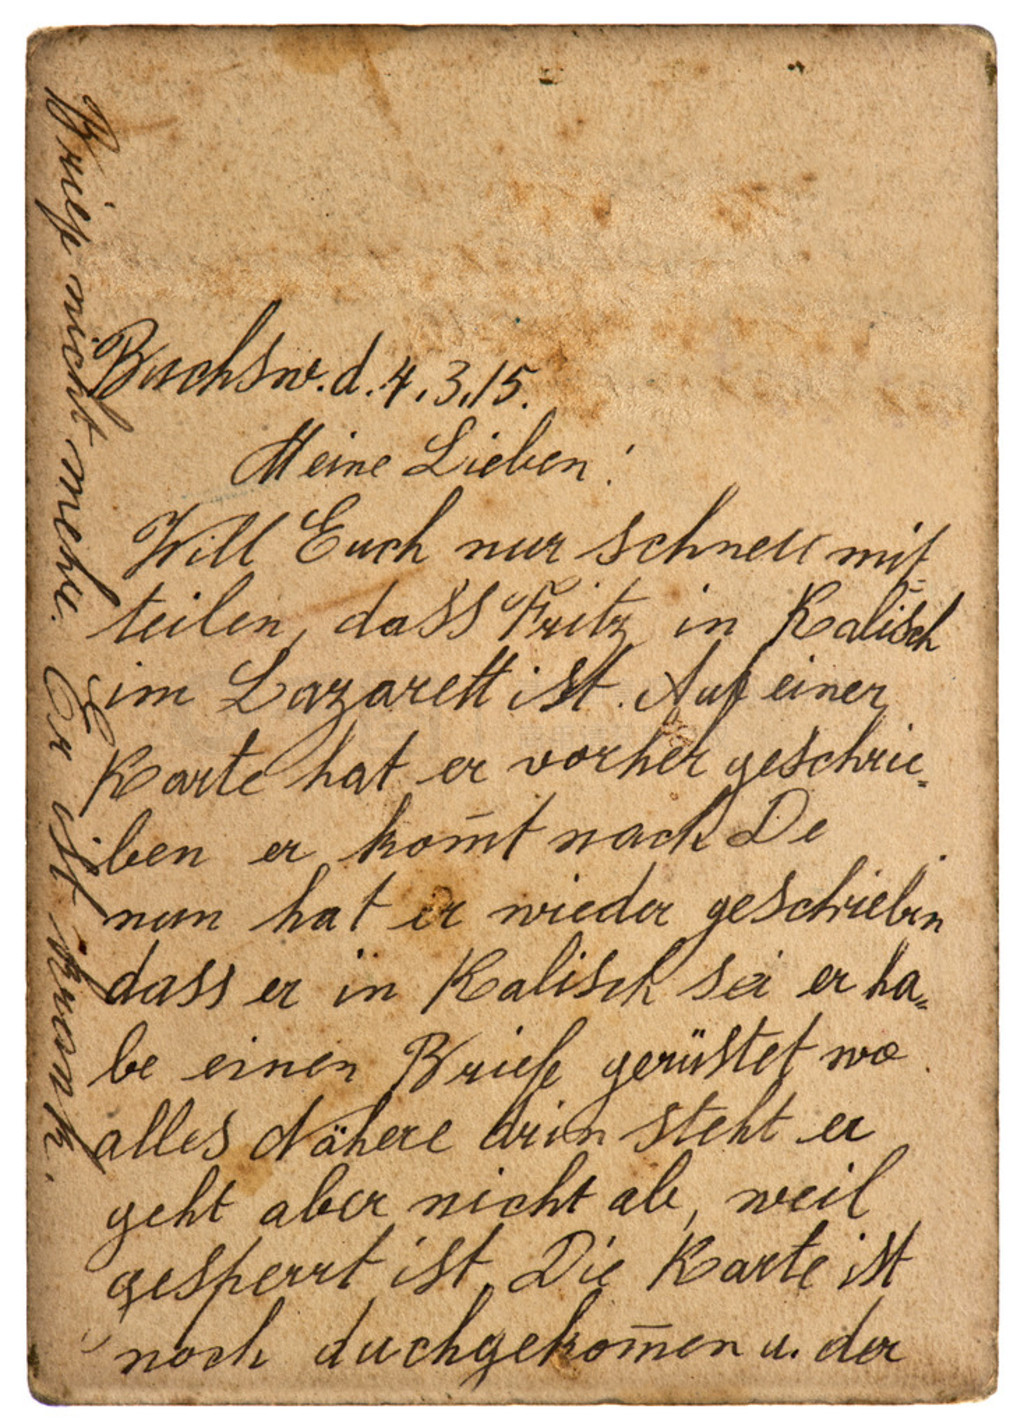 Buchsw. d. 4.3.15.
Meine Lieben!
Will Euch nur schnell mit
teilen, dass Fritz in Kalisch
im Lazarett ist. Auf einer
Karte hat er vorher geschrie=
ben er kom̄t nach De
nun hat er wieder geschrieben
dass er in Kalisch sei er ha=
be einen Brief gerüstet wo
alles Nähere drin steht er
geht aber nicht ab, weil
gesperrt ist. Die Karte ist
noch duchgekom̄en u. der
Brief nicht mehr. Er ist krank.